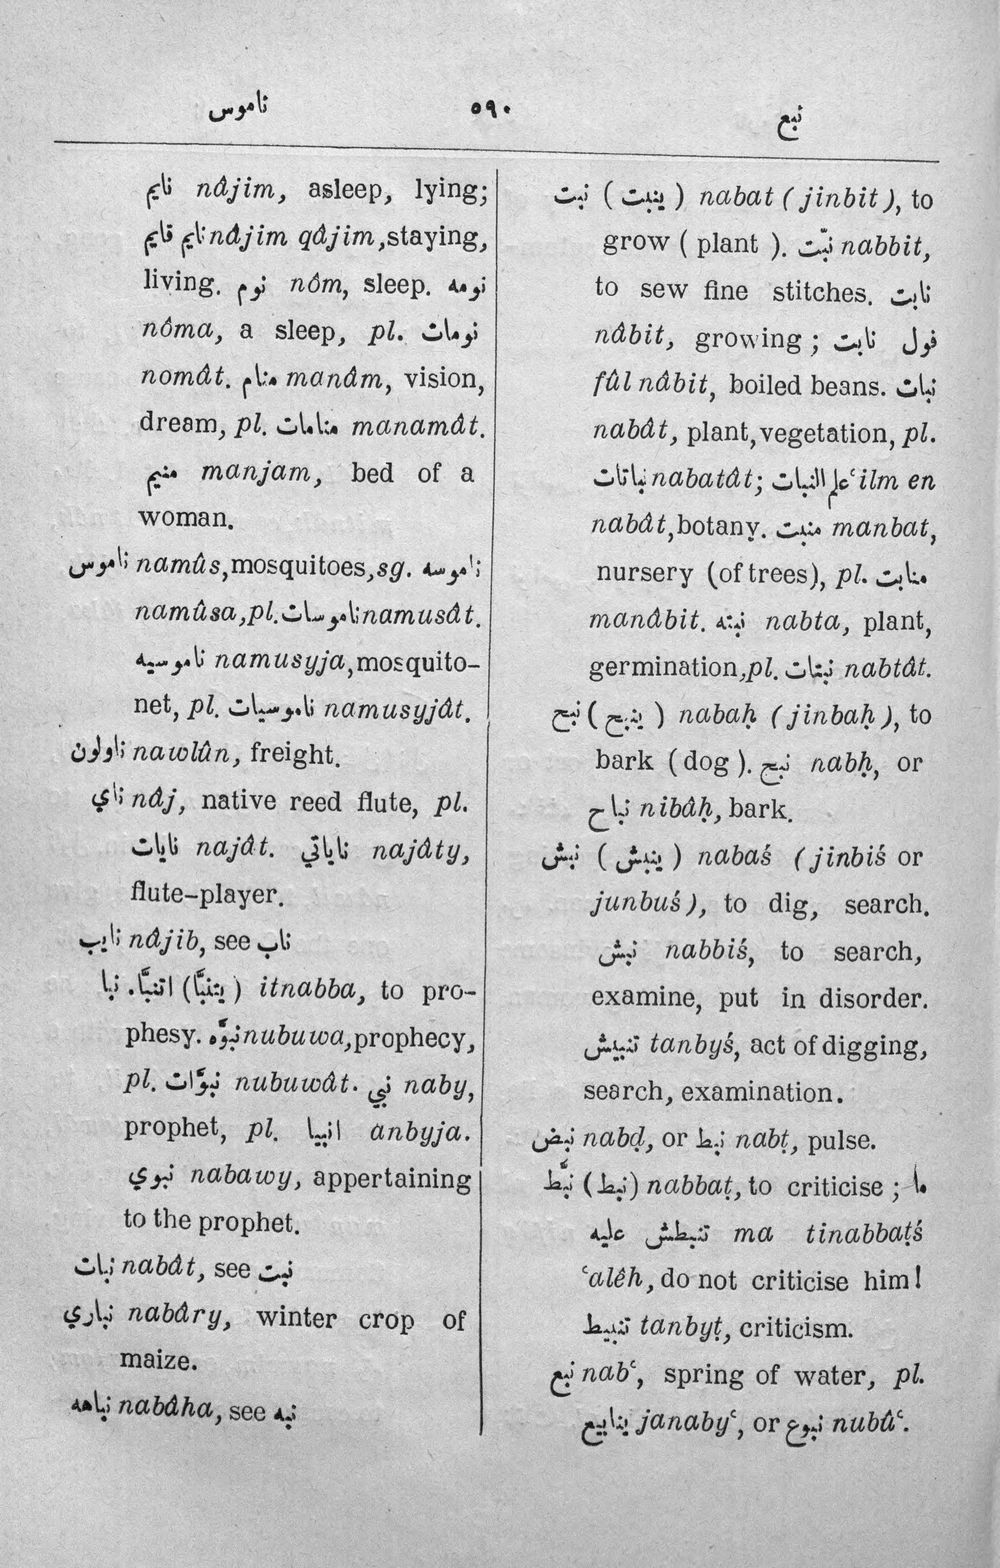 ناموس ٥٩٠ نبع
نايم nâjim, asleep, lying;
نايم قايم nâjim qâjim, staying,
living. نوم nôm, sleep. نومه
nôma, a sleep, pl. نومات
nomât. منام manâm, vision,
dream, pl. منامات manamât.
منيم manjam, bed of a
woman.
ناموس namûs, mosquitoes, sg. ناموسه
namûsa, pl. ناموسات namusât.
ناموسيه namusyja, mosquito-
net, pl. ناموسيات namusyjât.
ناولون nawlûn, freight.
ناي nâj, native reed flute, pl.
نايات najât. ناياتي najâty,
flute-player.
نايب nâjib, see ناب
نبا. اتنبَّا (يتنبَّا) itnabba, to pro-
phesy. نبوَّه nubuwa, prophecy,
pl. نبوَّات nubuwât. نبي naby,
prophet, pl. انبيا anbyja.
نبوي nabawy, appertaining
to the prophet.
نبات nabât, see نبت
نباري nabâry, winter crop of
maize.
نباهه nabâha, see نبه
نبت (ينبت) nabat (jinbit), to
grow (plant). نبّت nabbit,
to sew fine stitches. نابت
nâbit, growing; فول نابت
fûl nâbit, boiled beans. نبات
nabât, plant, vegetation, pl.
نباتات nabatât; علم النبات ʿilm en
nabât, botany. منبت manbat,
nursery (of trees), pl. منابت
manâbit. نبته nabta, plant,
germination, pl. نبتات nabtât.
نبح (ينبح) nabaḥ (jinbaḥ), to
bark (dog). نبح nabḥ, or
نباح nibâḥ, bark.
نبش (ينبش) nabaś (jinbiś or
junbuś), to dig, search.
نبش nabbiś, to search,
examine, put in disorder.
تنبيش tanbyś, act of digging,
search, examination.
نبض nabḍ, or نبط nabṭ, pulse.
نبَّط (نبط) nabbaṭ, to criticise; ما
تنبطش عليه ma tinabbaṭś
ʿalêh, do not criticise him!
تنبيط tanbyṭ, criticism.
نبع nabʿ, spring of water, pl.
ينابيع janabyʿ, or نبوع nubûʿ.